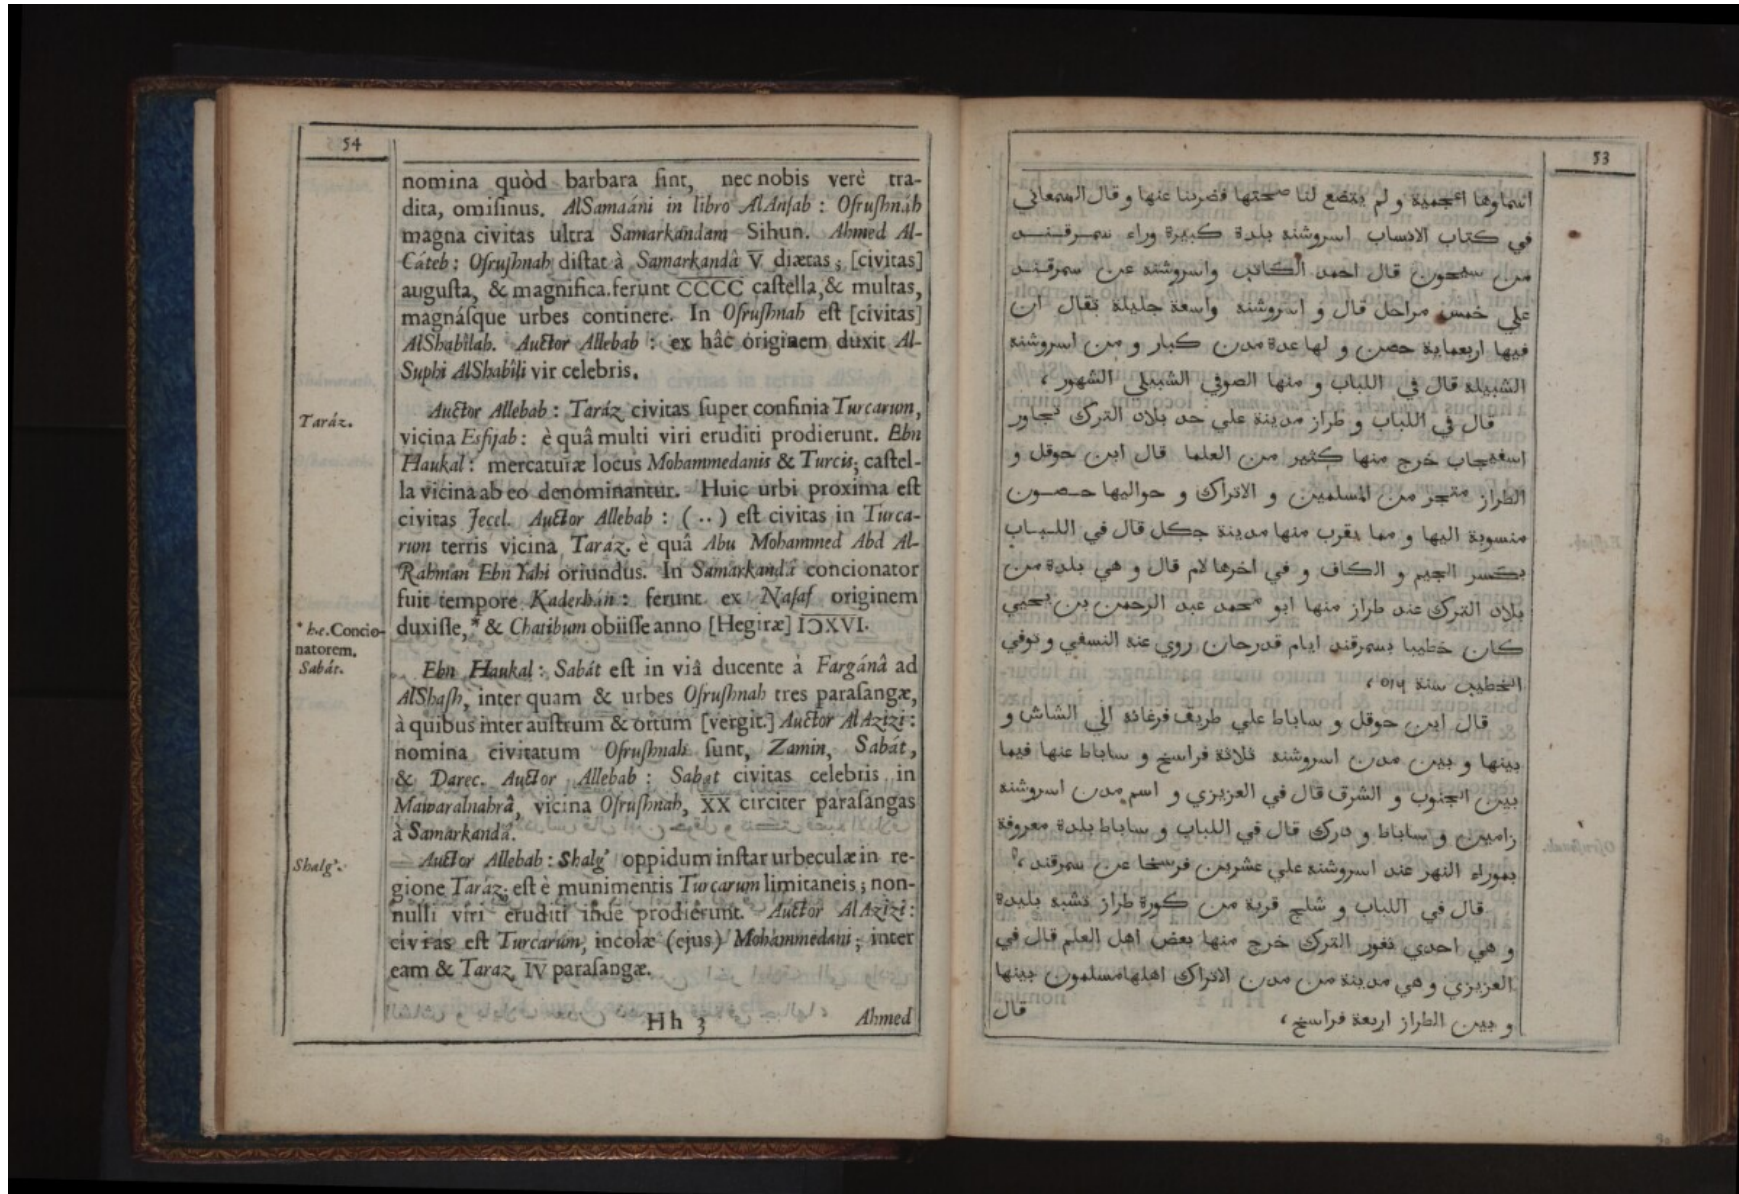 54
nomina quòd barbara sint, nec nobis verè tra-
dita, omisimus. AlSamaáni in libro AlAnsab : Osrushnáh
magna civitas ultra Samarkandam Sihun. Ahmed Al-
Cáteb : Osrushnah distat à Samarkandâ V̅ diætas ; [civitas]
augusta, & magnifica. ferunt C̅C̅C̅C̅ castella, & multas,
magnásque urbes continere. In Osrushnah est [civitas]
AlShabîlah. Auctor Allebab : ex hâc originem duxit Al-
Suphi AlShabîli vir celebris.
Taráz.
Auctor Allebab : Taráz civitas super confinia Turcarum,
vicina Esfijab : è quâ multi viri eruditi prodierunt. Ebn
Haukal : mercaturæ locus Mohammedanis & Turcis; castel-
la vicina ab eo denominantur. Huic urbi proxima est
civitas Jecel. Auctor Allebab : ( .. ) est civitas in Turca-
rum terris vicina Taráz. è quâ Abu Mohammed Abd Al-
Rahman Ebn Yahi oriundus. In Samarkandâ concionator
fuit tempore Kaderhán : ferunt ex Nasaf originem
duxisse, * & Chatibum obiisse anno [Hegiræ] IↃXVI.
* h.e. Concio-
natorem.
Sabát.
Ebn Haukal : Sabát est in viâ ducente à Fargánâ ad
AlShash, inter quam & urbes Osrushnah tres parasangæ,
à quibus inter austrum & ortum [vergit.] Auctor AlAzizi :
nomina civitatum Osrushnah sunt, Zamin, Sabát,
& Darec. Auctor Allebab : Sabat civitas celebris in
Mawaralnahrâ, vicina Osrushnah, X̅X̅ circiter parasangas
à Samarkandâ.
Shalg'.
Auctor Allebab : Shalg' oppidum instar urbeculæ in re-
gione Taráz; est è munimentis Turcarum limitaneis ; non-
nulli viri eruditi inde prodierunt. Auctor AlAzizi :
civitas est Turcarum, incolæ (ejus) Mohammedani ; inter
eam & Taraz I̅V̅ parasangæ.
Hh 3
Ahmed
53
اسماوها اعجمية و لم يتضع لنا صحتها فضربنا عنها و قال السمعاني
في كتاب الانساب اسروشنه بلدة كبيرة وراء سمرقند
من سيحون قال احمد الكاتب واسروشنه عن سمرقند
علي خمس مراحل قال و اسروشنه واسعة جليلة يقال ان
فيها اربعماية حصن و لها عدة مدن كبار و من اسروشنه
الشبيلة قال في اللباب و منها الصوفي الشبيلي الشهور ،
قال في اللباب و طراز مدينة علي حد بلاد الترك تجاور
اسفيجاب خرج منها كثير من العلما قال ابن حوقل و
الطراز متجر من المسلمين و الاتراك و حواليها حصون
منسوبة اليها و مما يقرب منها مدينة جكل قال في اللباب
بكسر الجيم و الكاف و في اخرها لام قال و هي بلدة من
بلاد الترك عند طراز منها ابو محمد عبد الرحمن بن يحيي
كان خطيبا بسمرقند ايام قدرخان روي عنه النسفي و توفي
الخطيب سنة ٥١٦ ،
قال ابن حوقل و ساباط علي طريف فرغانة الي الشاش و
بينها و بين مدن اسروشنه ثلاثة فراسخ و ساباط عنها فيما
بين الجنوب و الشرق قال في العزيزي و اسم مدن اسروشنه
زامين و ساباط و درك قال في اللباب و ساباط بلدة معروفة
بموراء النهر عند اسروشنه علي عشرين فرسخا عن سمرقند ،
قال في اللباب و شلج قرية من كورة طراز تشبه بليدة
و هي احدي ثغور الترك خرج منها بعض اهل العلم قال في
العزيزي و هي مدينة من مدن الاتراك اهلها مسلمون بينها
و بين الطراز اربعة فراسخ ،
قال